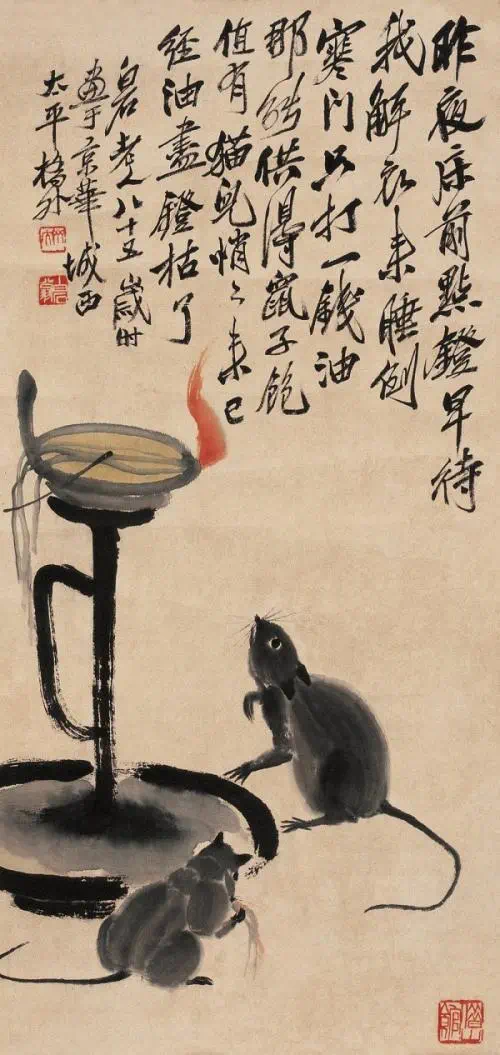 昨夜床前點鐙早待
我解衣来睡倒
寒门只打一錢油
那能供得鼠子飽
值有貓兒悄〻来已
經油盡鐙枯了
白石老人八十五歲时
畫于京華城西
太平橋外